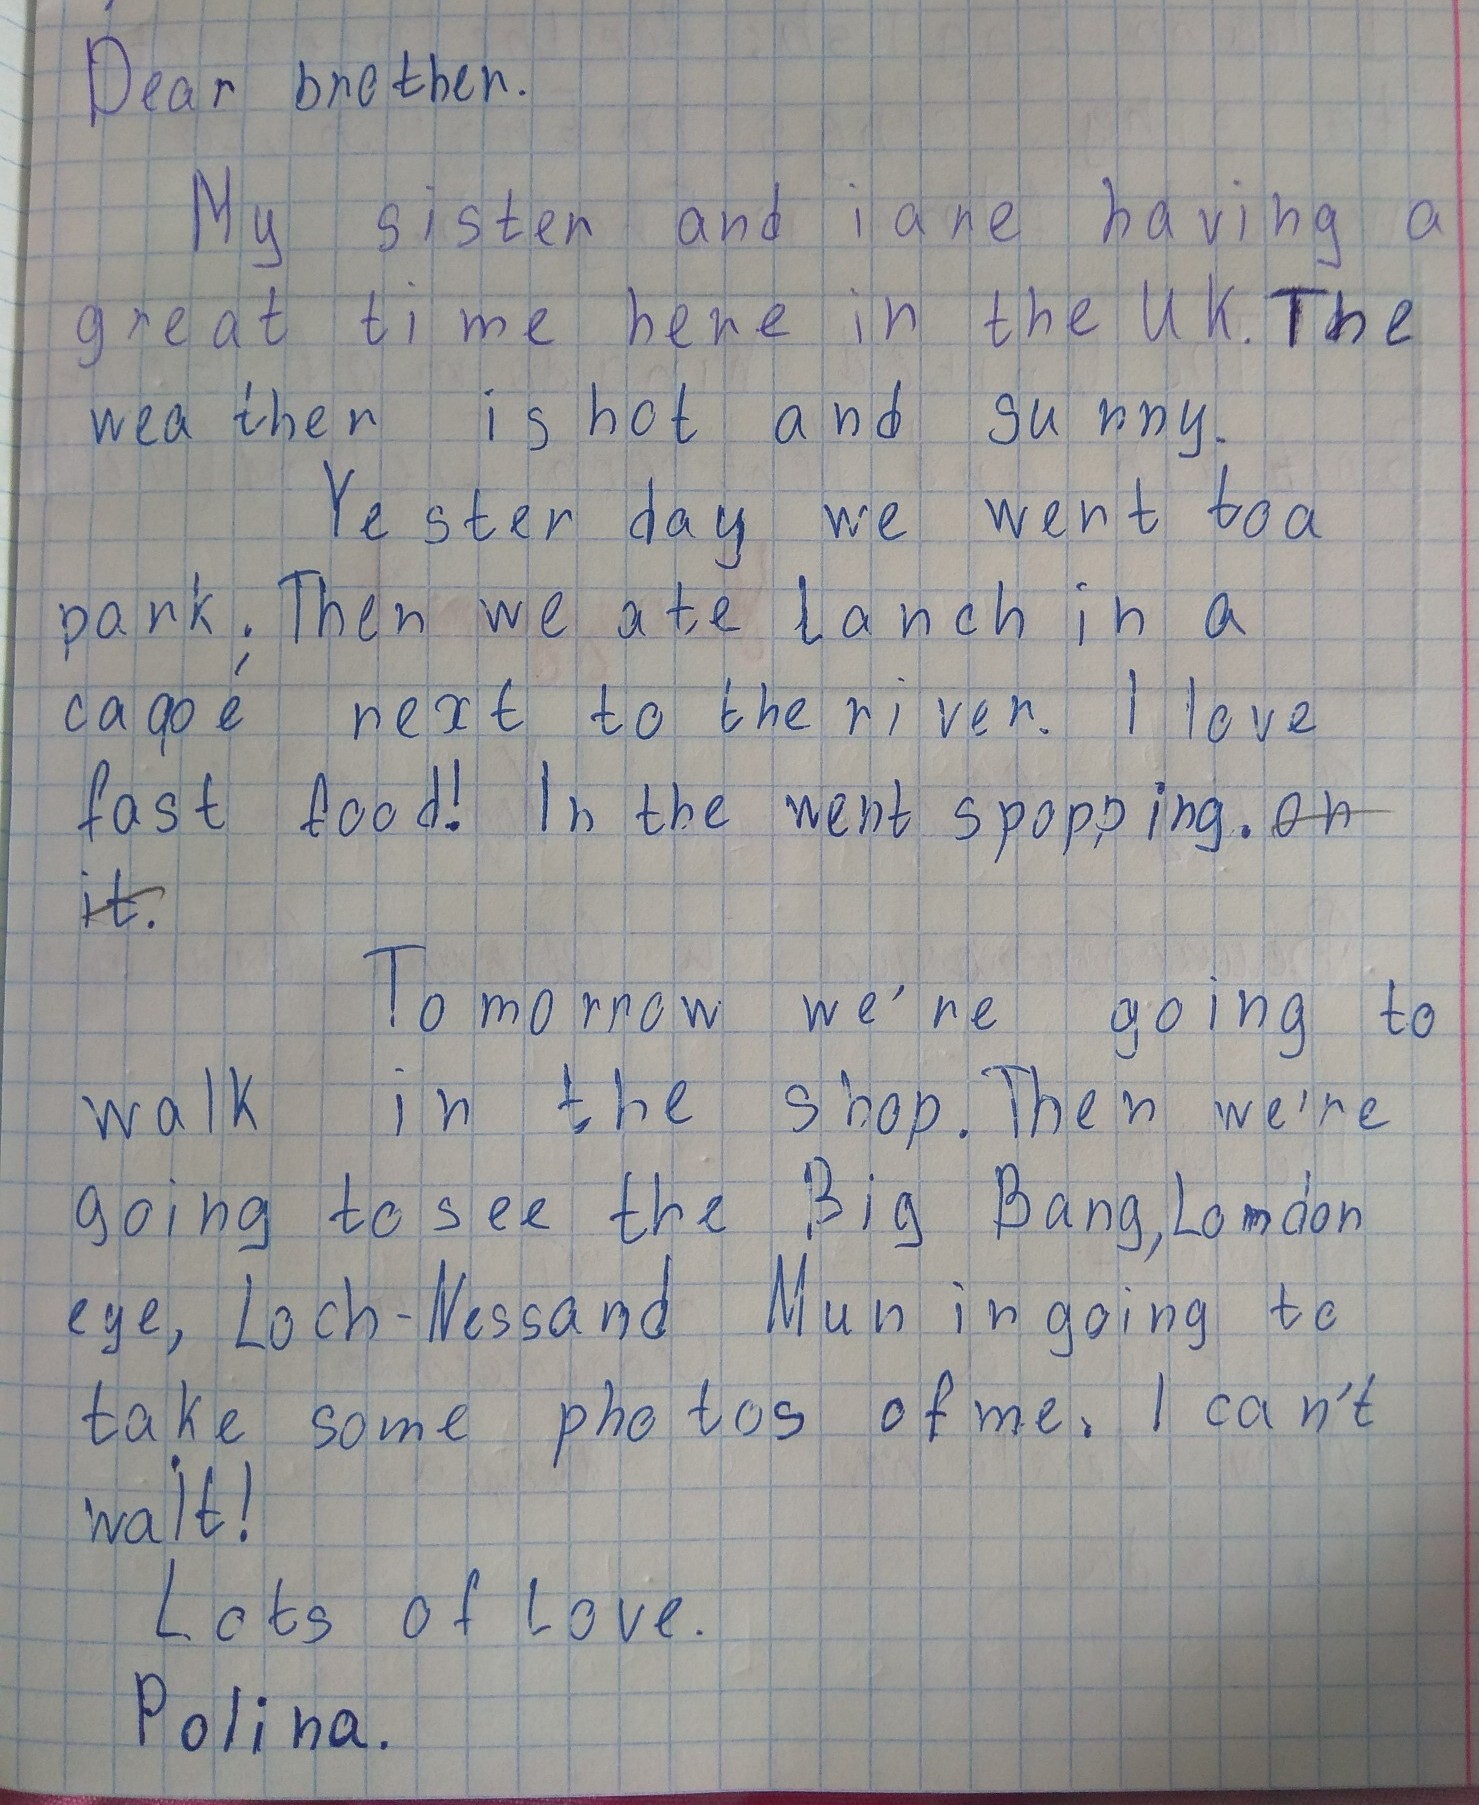 Dear brother.
My sister and i are having a
great time here in the UK. The
weather is hot and sunny.
Yesterday we went to a
park. Then we ate lanch in a
cagoé next to the river. I love
fast food! In the went spopping. on
it.
Tomorrow we're going to
walk in the shop. Then we're
going to see the Big Bang, Lomdon
eye, Loch-Ness and Mun in going to
take some photos of me. I can't
wait!
Lots of Love.
Polina.